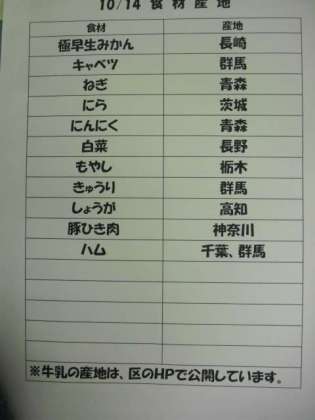 10/14 食材産地
食材 産地
極早生みかん 長崎
キャベツ 群馬
ねぎ 青森
にら 茨城
にんにく 青森
白菜 長野
もやし 栃木
きゅうり 群馬
しょうが 高知
豚ひき肉 神奈川
ハム 千葉、群馬
※牛乳の産地は、区のHPで公開しています。